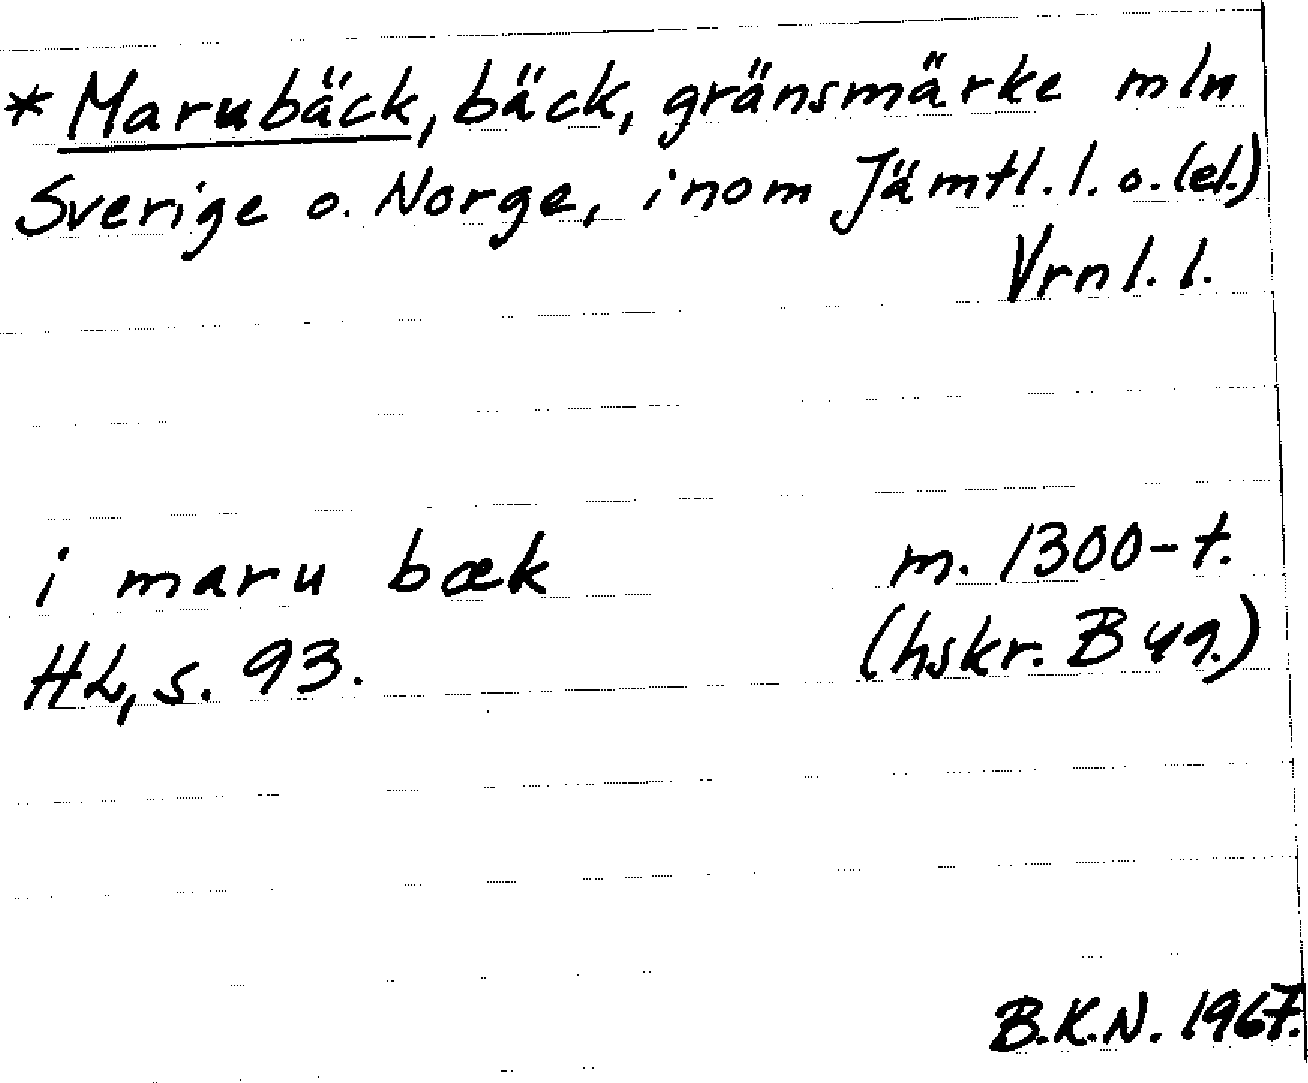 * Marubäck, bäck, gränsmärke mln
Sverige o. Norge, inom Jämtl. l. o. (el.)
Vrml. l.
i maru bæk m. 1300-t.
HL, s. 93. (hskr. B 49.)
B.K.N. 1967.